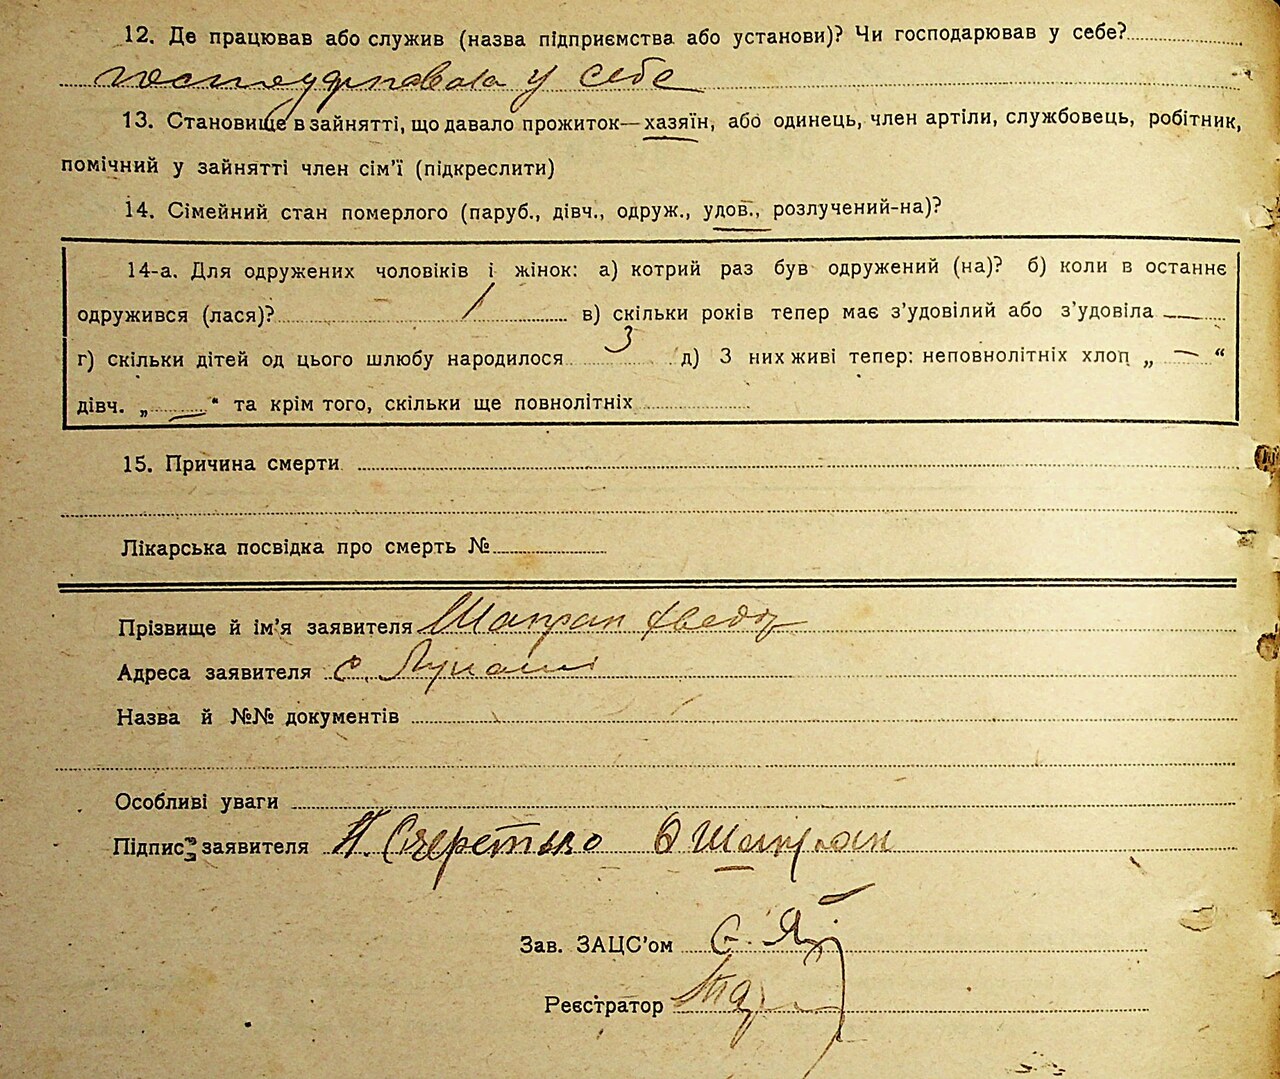 12. Де працював або служив (назва підприємства або установи)? Чи господарював у себе?
господарювала у себе
13. Становище в зайнятті, що давало прожиток—хазяїн, або одинець, член артіли, службовець, робітник,
помічний у зайнятті член сім'ї (підкреслити)
14. Сімейний стан померлого (паруб., дівч., одруж., удов., розлучений-на)?
14-а. Для одружених чоловіків і жінок: а) котрий раз був одружений (на)? б) коли в останнє
одружився (лася)? 1 в) скільки років тепер має з'удовілий або з'удовіла —
г) скільки дітей од цього шлюбу народилося 3 д) З них живі тепер: неповнолітніх хлоп „ — “
дівч. „ — “ та крім того, скільки ще повнолітніх
15. Причина смерти
Лікарська посвідка про смерть №
Прізвище й ім'я заявителя Шапран Хведор
Адреса заявителя с.
Назва й №№ документів
Особливі уваги
Підпис заявителя О Шапран
Зав. ЗАЦС'ом С.
Реєстратор